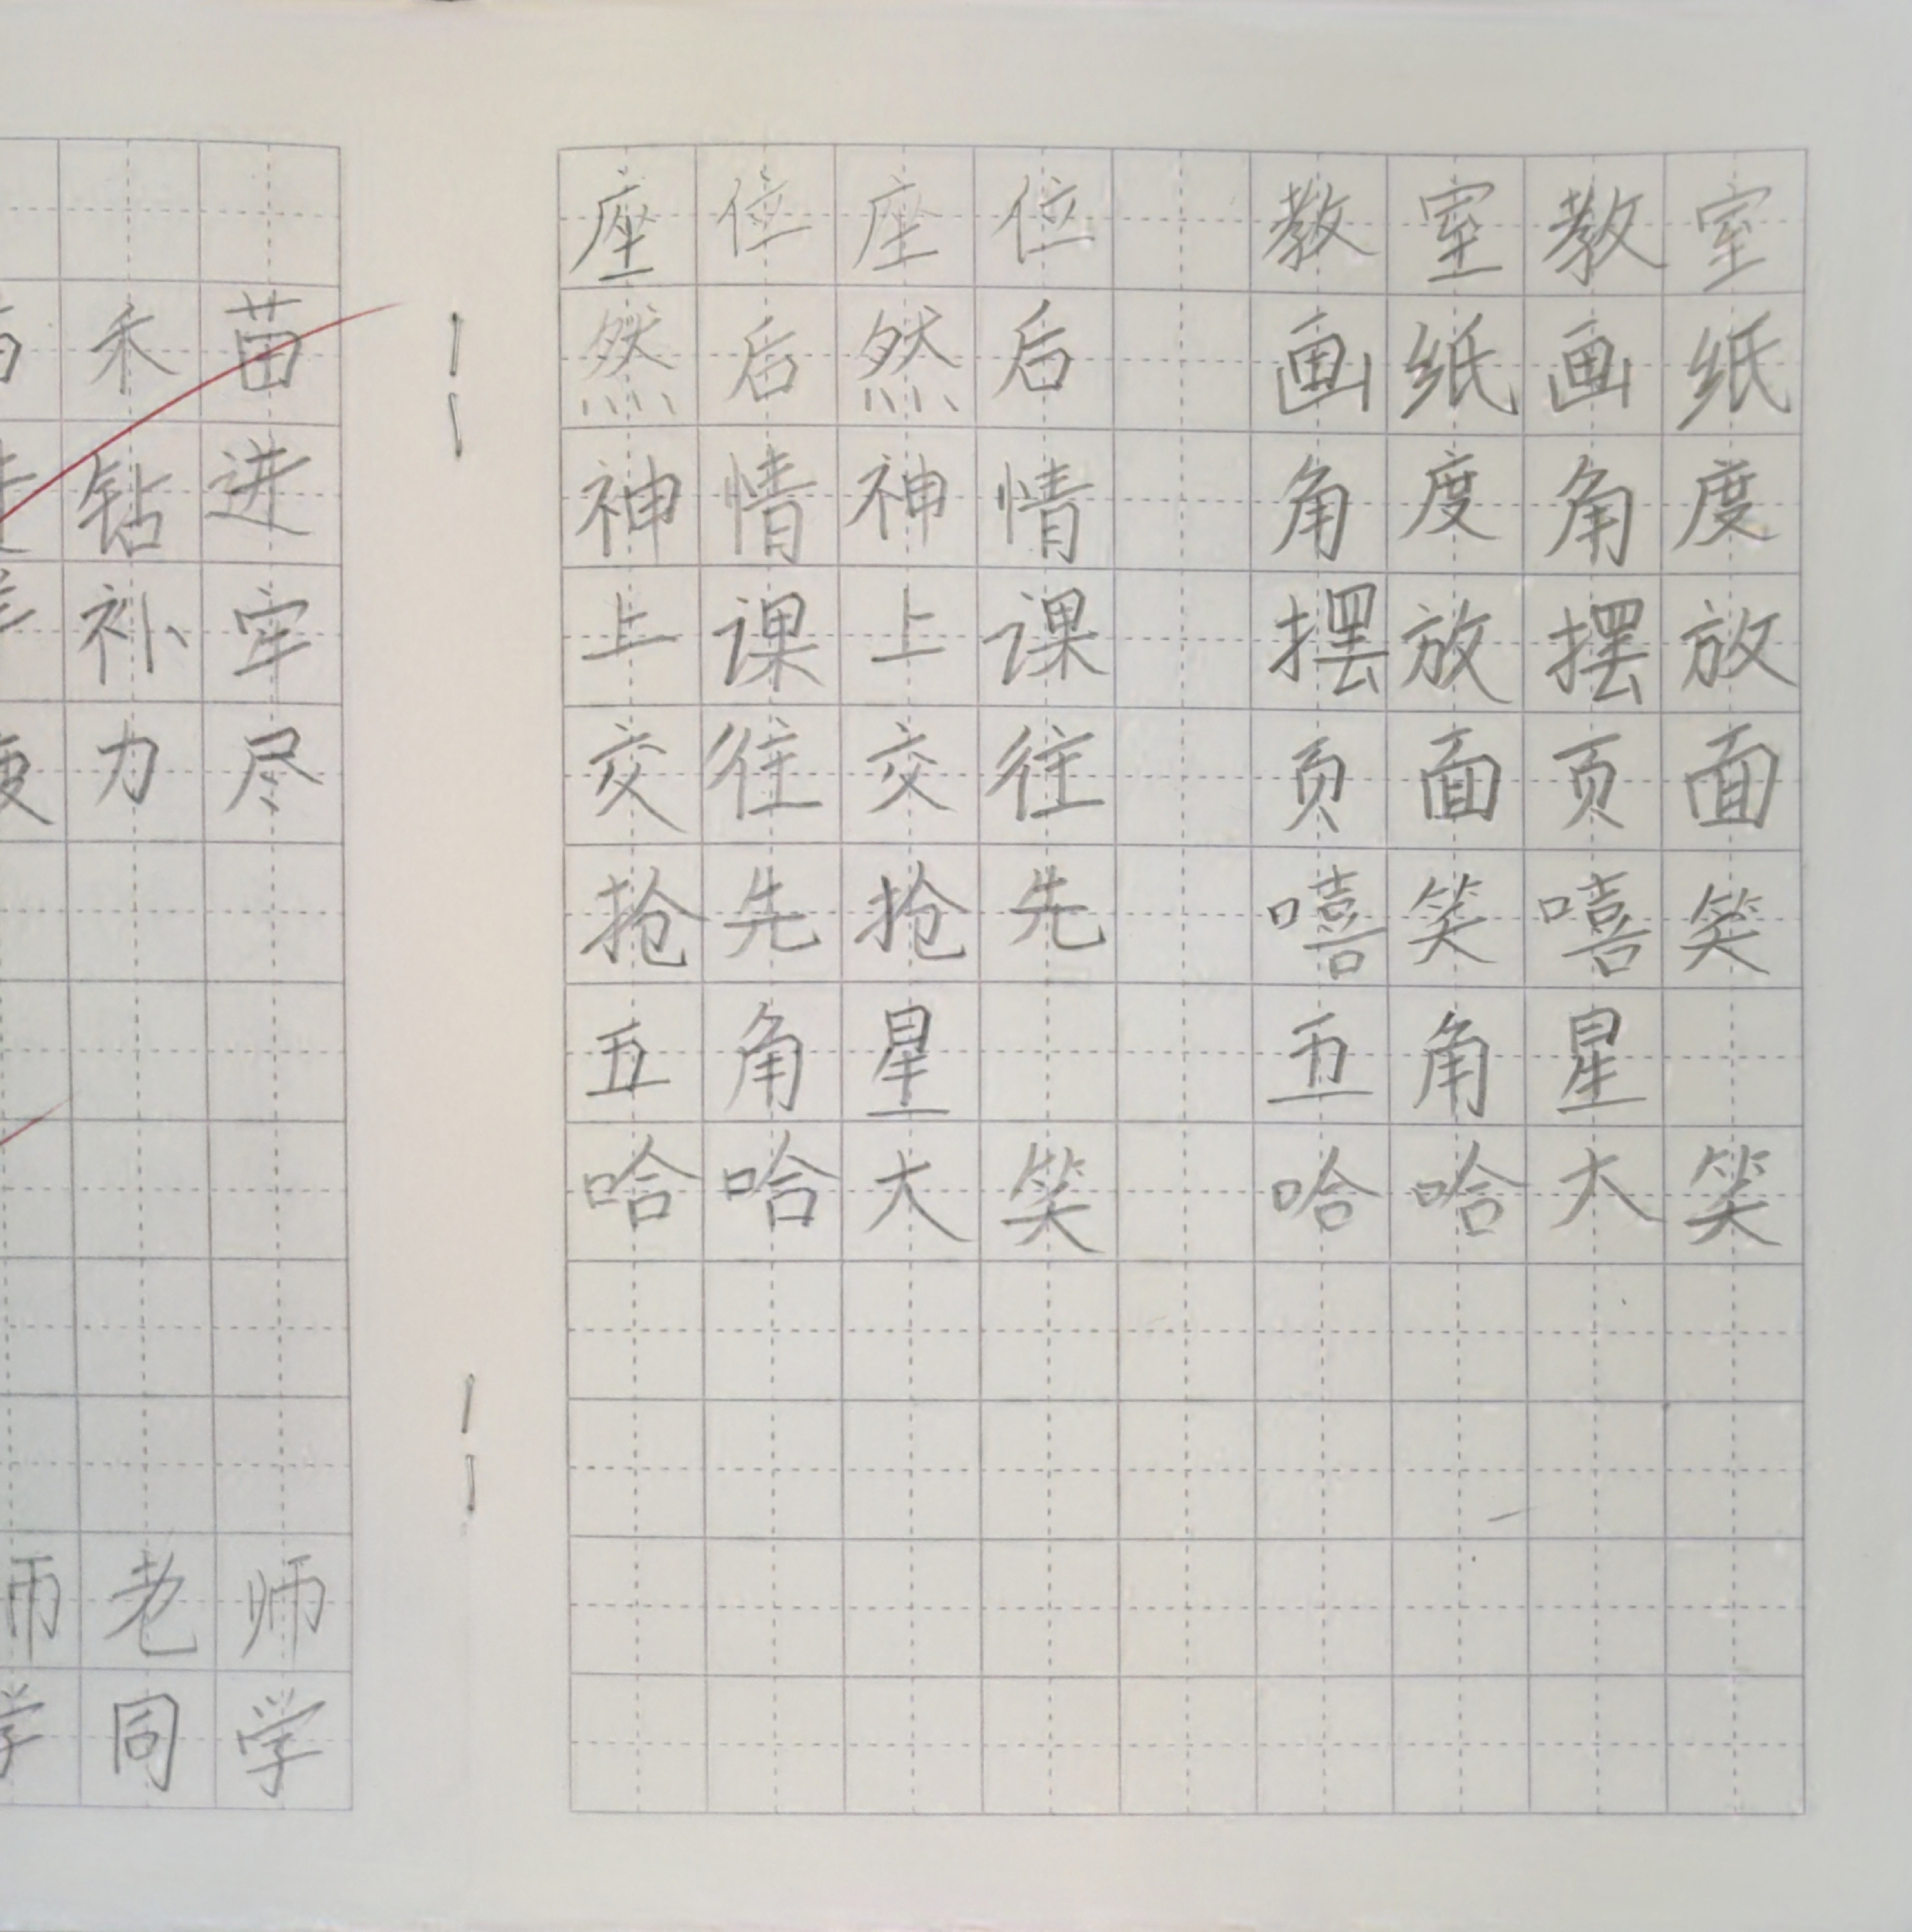 禾苗
钻进
补牢
力尽
师老师
学同学
座位座位 教室教室
然后然后 画纸画纸
神情神情 角度角度
上课上课 摆放摆放
交往交往 页面页面
抢先抢先 嘻笑嘻笑
五角星 五角星
哈哈大笑 哈哈大笑